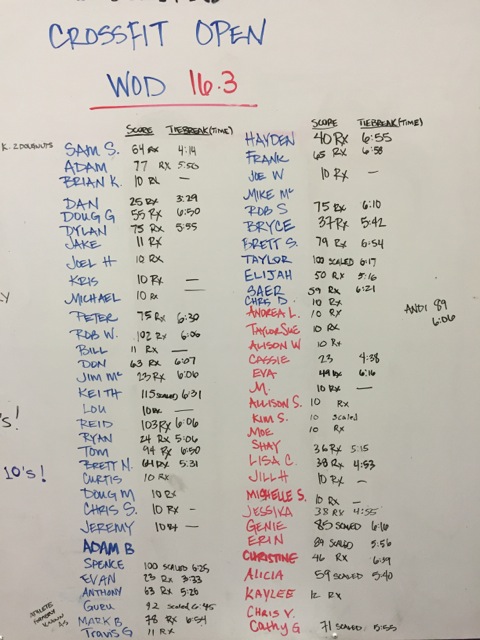 CROSSFIT OPEN
WOD 16.3
SCORE TIEBREAK(TIME)
K. 2 DOUGNUTS
SAM S. 64 RX 4:14
ADAM 77 RX 5:50
BRIAN K. 10 RX —
DAN 25 RX 3:29
DOUG G 55 RX 6:50
DYLAN 75 RX 5:55
JAKE 11 RX
JOEL H 10 RX
KRIS 10 RX —
MICHAEL 10 RX
PETER 75 RX 6:30
ROB W. 102 RX 6:06
BILL 11 RX —
DON 63 RX 6:07
JIM MC 23 RX 6:06
KEITH 115 SCALED 6:31
LOU 10 RX —
REID 103 RX 6:06
RYAN 24 RX 5:06
TOM 94 RX 6:50
BRETT N. 64 RX 5:31
CURTIS 10 RX
DOUG M 10 RX
CHRIS S. 10 RX —
JEREMY 10 RX —
ADAM B
SPENCE 100 SCALED 6:25
EVAN 23 RX 3:33
ANTHONY 63 RX 5:20
GURU 92 scaled 6:45
MARK B 78 RX 6:54
TRAVIS G 11 RX
SCORE TIEBREAK(TIME)
HAYDEN 40 RX 6:55
FRANK 65 RX 6:58
JOE W 10 RX —
MIKE MC
ROB S 75 RX 6:10
BRYCE 37 RX 5:42
BRETT S. 79 RX 6:54
TAYLOR 100 SCALED 6:17
ELIJAH 50 RX 5:16
SAER 59 RX 6:21
CHRIS D. 10 RX
ANDREA L. 10 RX
TAYLOR SUE 10 RX
ALISON W 10 RX
CASSIE 23 4:38
EVA RX 6:16
M. 10 RX —
ALLISON S. 10 RX
KIM S. 10 Scaled
MOE 10 RX
SHAY 36 RX 5:15
LISA C. 38 RX 4:53
JILL H 10 RX —
MICHELLE S. 10 RX —
JESSIKA 38 RX 4:55
GENIE 85 SCALED 6:16
ERIN 89 SCALED 5:56
CHRISTINE 46 RX 6:39
ALICIA 59 SCALED 5:40
KAYLEE RX
CHRIS V.
Cathy G 71 SCALED 5:55
ANDI 89
6:06
Y
's!
10's!
ATHLETE
FORMERLY
KNOWN
AS